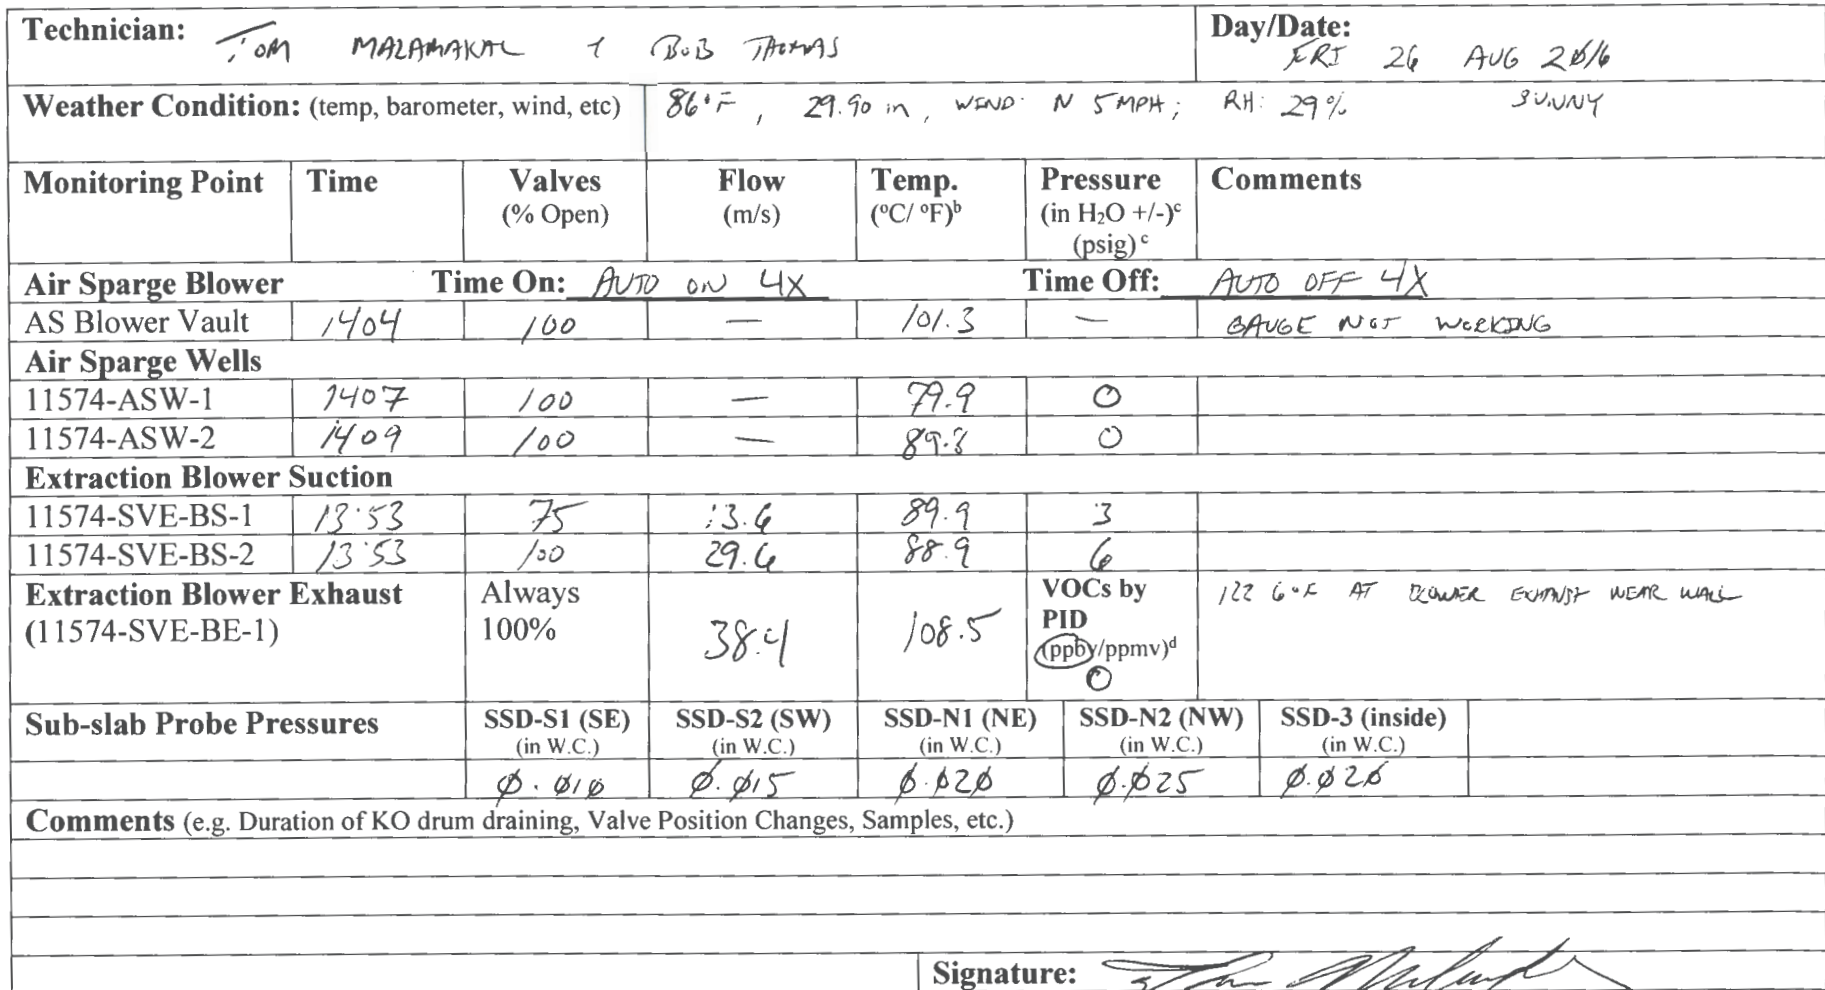 Technician: TOM MALAMAKAL & BOB THOMAS Day/Date: FRI 26 AUG 2016
Weather Condition: (temp, barometer, wind, etc) 86°F, 29.90 in, WIND: N 5 MPH; RH: 29% SUNNY
Monitoring Point Time Valves (% Open) Flow (m/s) Temp. (°C/ °F)b Pressure (in H2O +/-)c (psig) c Comments
Air Sparge Blower Time On: AUTO ON 4X Time Off: AUTO OFF 4X
AS Blower Vault 1404 100 — 101.3 — GAUGE NOT WORKING
Air Sparge Wells
11574-ASW-1 1407 100 — 79.9 0
11574-ASW-2 1409 100 — 89.3 0
Extraction Blower Suction
11574-SVE-BS-1 13:53 75 13.6 89.9 3
11574-SVE-BS-2 13:53 100 29.6 88.9 6
Extraction Blower Exhaust (11574-SVE-BE-1) Always 100% 38.4 108.5 VOCs by PID (ppbv/ppmv)d 0 122.6°F AT BLOWER EXHAUST NEAR WALL
Sub-slab Probe Pressures SSD-S1 (SE) (in W.C.) SSD-S2 (SW) (in W.C.) SSD-N1 (NE) (in W.C.) SSD-N2 (NW) (in W.C.) SSD-3 (inside) (in W.C.)
0.010 0.015 0.020 0.025 0.020
Comments (e.g. Duration of KO drum draining, Valve Position Changes, Samples, etc.)
Signature: